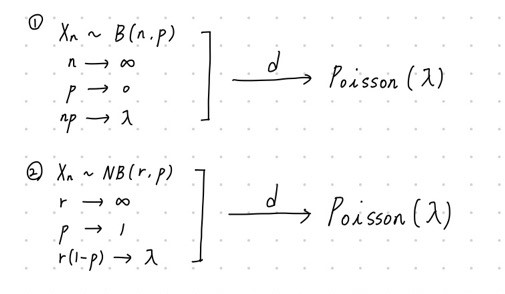 ① Xₙ ~ B(n.p)
n → ∞
p → 0
np → λ
d → Poisson(λ)
② Xₙ ~ NB(r.p)
r → ∞
p → 1
r(1-p) → λ
d → Poisson(λ)